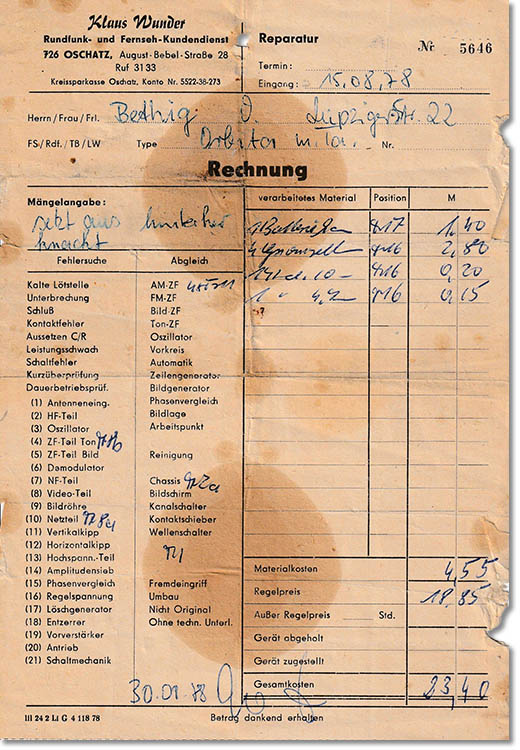 Klaus Wunder
Rundfunk- und Fernseh-Kundendienst
726 OSCHATZ, August-Bebel-Straße 28
Ruf 3133
Kreissparkasse Oschatz, Konto Nr. 5522-38-273
Reparatur
Nr 5646
Termin:
Eingang: 15.08.78
Herrn/Frau/Frl. Bethig O. Leipziger Str. 22
FS/Rdf./TB/LW Type Nr.
Rechnung
Mängelangabe:
setzt aus
knackt
Fehlersuche Abgleich
Kalte Lötstelle AM-ZF
Unterbrechung FM-ZF
Schluß Bild-ZF
Kontaktfehler Ton-ZF
Aussetzen C/R Oszillator
Leistungsschwach Vorkreis
Schaltfehler Automatik
Kurzüberprüfung Zeilengenerator
Dauerbetriebsprüf. Bildgenerator
(1) Antenneneing. Phasenvergleich
(2) HF-Teil Bildlage
(3) Oszillator Arbeitspunkt
(4) ZF-Teil Ton
(5) ZF-Teil Bild Reinigung
(6) Demodulator
(7) NF-Teil Chassis
(8) Video-Teil Bildschirm
(9) Bildröhre Kanalschalter
(10) Netzteil Kontaktschieber
(11) Vertikalkipp Wellenschalter
(12) Horizontalkipp
(13) Hochspann.-Teil
(14) Amplitudensieb
(15) Phasenvergleich Fremdeingriff
(16) Regelspannung Umbau
(17) Löschgenerator Nicht Original
(18) Entzerrer Ohne techn. Unterl.
(19) Vorverstärker
(20) Antrieb
(21) Schaltmechanik
verarbeitetes Material Position M
1,40
2,80
0,20
0,15
Materialkosten 4,55
Regelpreis 18,85
Außer Regelpreis Std.
Gerät abgeholt
Gerät zugestellt
Gesamtkosten 23,40
30.01.78
III 24 2 Lt G 4 118 78 Betrag dankend erhalten